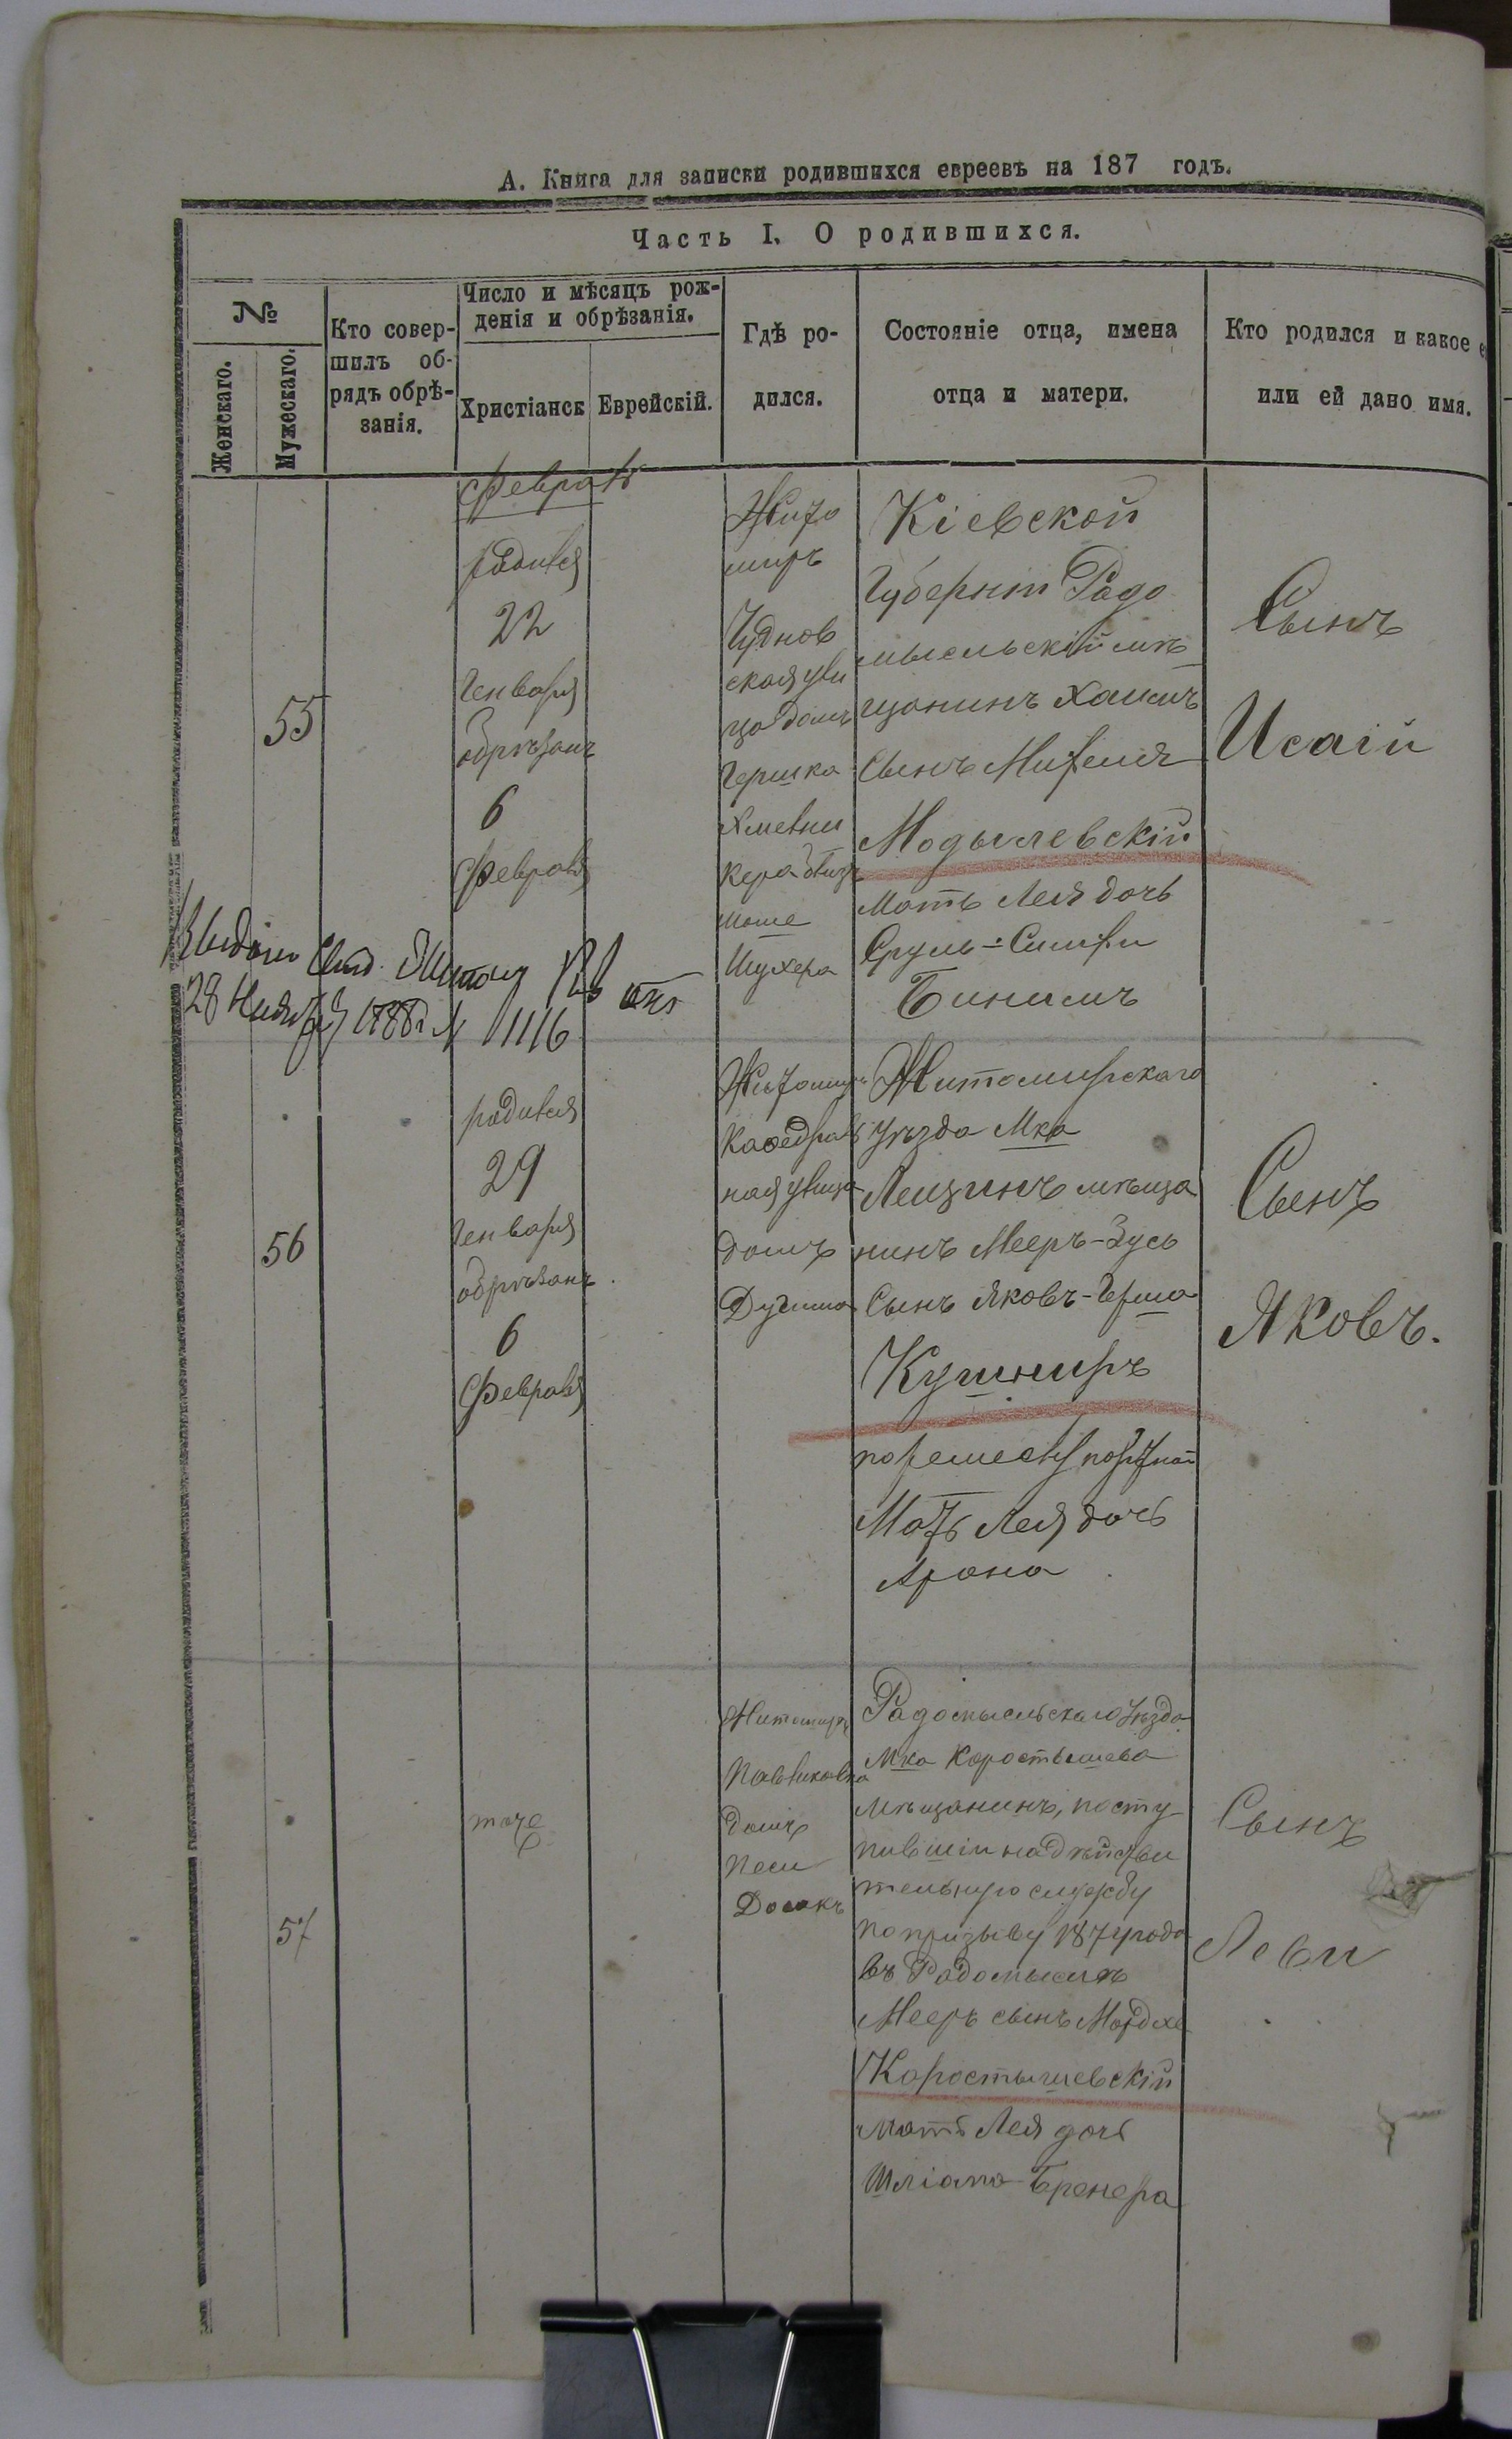 А. Книга для записки родившихся евреевъ на 187 годъ.
Часть I. О родившихся.
№
Женскаго.
Мужескаго.
Кто совер-
шилъ об-
рядъ обрѣ-
занія.
Число и мѣсяцъ рож-
денія и обрѣзанія.
Христіанск
Еврейскій.
Гдѣ ро-
дился.
Состояніе отца, имена
отца и матери.
Кто родился и какое е
или ей дано имя.
Февраль
55
родился
22
Генваря
обрѣзанъ
6
Февраля
Жито
миръ
Чуднов
ская ули
ца домъ
Гершка
Хмельни
кера близъ
Шухера
Кіевской
Губерніи Радо
мысльскій мѣ
щанинъ Хаимъ
Сынъ Мителя
Модылевскій
Мать Лея дочь
Сруль-Симхи
Бинимъ
Сынъ
Исаій
28 1888 г № 1116
56
родился
29
Генваря
обрѣзанъ
6
Февраля
Житомиръ
Каѳедраль
ная улица
домъ
Житомирскаго
уѣзда Мка
Лещинъ мѣща
нинъ Мееръ-Зусь
Сынъ Яковъ-Герша
Кушниръ
по ремеслу портной
Мать Лея дочь
Арона
Сынъ
Яковъ.
57
тоже
Житомиръ
Павликовка
домъ
Песи
Досакъ
Радомысльскаго уѣзда
Мка Коростышева
мѣщанинъ, посту
пившій на дѣйстви
тельную службу
по призыву 1874 года
въ Радомыслѣ
Мееръ сынъ Мордхе
Коростышевскій
мать Лея дочь
Шліома Бренера
Сынъ
Леви